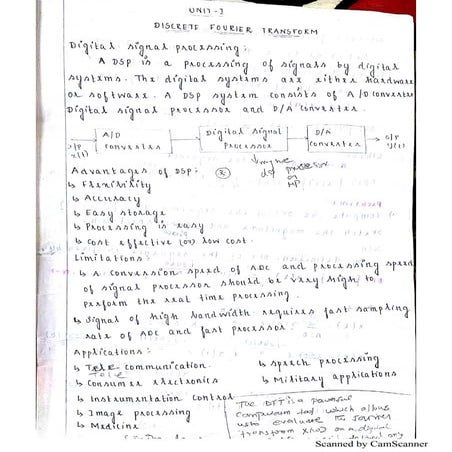 UNIT-3
DISCRETE FOURIER TRANSFORM
Digital signal processing:
A DSP is a processing of signals by digital
systems. The digital systems are either hardware
or software. A DSP system consists of A/D converter
Digital signal processor and D/A converter.
A/D converter
Digital signal processor
D/A converter
I/P x(t)
O/P y(t)
Advantages of DSP:
↳ Flexibility
↳ Accuracy
↳ Easy storage
↳ Processing is easy
↳ cost effective (or) low cost.
Limitations:
↳ A conversion speed of ADC and processing speed
of signal processor should be very high to
perform the real time processing.
↳ signal of high bandwidth requires fast sampling
rate of ADC and fast processor
Applications:
↳ Tele communication
↳ speech processing
↳ Consumer electronics
↳ Military applications
↳ Instrumentation control
↳ Image processing
↳ Medicine
The DFT is a powerful
computation tool which allows
us to evaluate the Fourier
transform
on a digital
Scanned by CamScanner